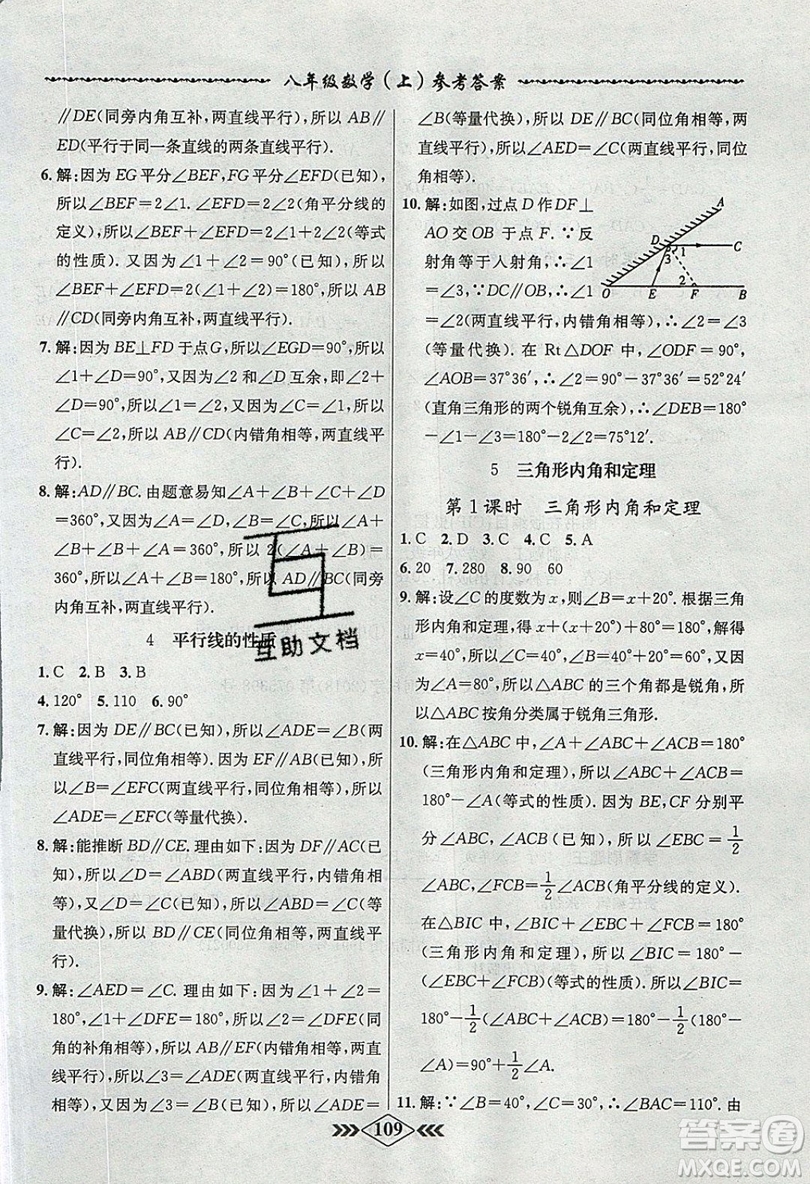 八年级数学(上)参考答案
∥DE(同旁内角互补,两直线平行),所以 AB∥
ED(平行于同一条直线的两条直线平行).
6. 解:因为 EG 平分∠BEF,FG 平分∠EFD(已知),
所以∠BEF=2∠1.∠EFD=2∠2(角平分线的
定义),所以∠BEF+∠EFD=2∠1+2∠2(等式
的性质). 又因为∠1+∠2=90°(已知),所以
∠BEF+∠EFD=2(∠1+∠2)=180°,所以 AB
∥CD(同旁内角互补,两直线平行).
7. 解:因为 BE⊥FD 于点G,所以∠EGD=90°,所以
∠1+∠D=90°,又∠2 和∠D 互余,即∠2+∠D
=90°,所以∠1=∠2. 又因为∠C=∠1,所以
∠C=∠2,所以 AB∥CD(内错角相等,两直线平
行).
8. 解:AD∥BC. 由题意易知∠A+∠B+∠C+∠D
=360°. 因为∠A=∠C,∠B=∠D,所以∠A+∠B
+∠A+∠B=360°,所以 2(∠A+∠B)=
360°,所以∠A+∠B=180°,所以 AD∥BC(同旁
内角互补,两直线平行).
4 平行线的性质
1. C 2. B 3. B
4. 120° 5. 110 6. 90°
7. 解:因为 DE∥BC(已知),所以∠ADE=∠B(两
直线平行,同位角相等). 又因为 EF∥AB(已知),
所以∠B=∠EFC(两直线平行,同位角相等),所
以∠ADE=∠EFC(等量代换).
8. 解:能推断 BD∥CE. 理由如下:因为 DF∥AC(已
知),所以∠D=∠ABD(两直线平行,内错角相
等). 又因为∠C=∠D(已知),所以∠C=∠ABD(等量代
换),所以 BD∥CE(同位角相等,两直线平
行).
9. 解:∠AED=∠C. 理由如下:因为∠1+∠2=
180°,∠1+∠DFE=180°,所以∠2=∠DFE(同
角的补角相等),所以 AB∥EF(内错角相等,两直
线平行),所以∠3=∠ADE(两直线平行,内错角
相等). 又因为∠3=∠B(已知),所以∠ADE=
∠B(等量代换),所以 DE∥BC(同位角相等,两
直线平行),所以∠AED=∠C(两直线平行,同位
角相等).
10. 解:如图,过点 D 作 DF⊥
AO 交 OB 于点 F. ∵反
射角等于入射角,∴∠1
=∠3,∵DC∥OB(已
知),∴∠1=∠2(两直线平行,内错角相等),∴∠2=∠3
(等量代换). 在 Rt△DOF 中,∠ODF=90°,
∠AOB=37°36′,∴∠2=90°-37°36′=52°24′
(直角三角形的两个锐角互余),∴∠DEB=180°
-∠2-∠3=180°-2∠2=75°12′.
5 三角形内角和定理
第1课时 三角形内角和定理
1. C 2. D 3. C 4. C 5. A
6. 20 7. 280 8. 90 60
9. 解:设∠C 的度数为 x,则∠B=x+20°. 根据三角
形内角和定理,得 x+(x+20°)+80°=180°,解得
x=40°. 所以∠C=40°,∠B=60°. 因为三个内角
都是锐角,所以△ABC 按角分类属于锐角三角形.
10. 解:在△ABC 中,∠A+∠ABC+∠ACB=180°
(三角形内角和定理),所以∠ABC+∠ACB=
180°-∠A(等式的性质). 因为 BE,CF 分别平
分∠ABC,∠ACB(已知),所以∠EBC=1/2
∠ABC,∠FCB=1/2∠ACB(角平分线的定义).
在△BIC 中,∠BIC+∠EBC+∠FCB=180°
(三角形内角和定理),所以∠BIC=180°-
(∠EBC+∠FBC)(等式的性质),所以∠BIC=
180°-1/2(∠ABC+∠ACB)=180°-1/2(180°
-∠A)=90°+1/2∠A.
11. 解:∵∠B=40°,∠C=30°,∴∠BAC=110°. 由
A D C
3 1
2
O E F B
互助文档
109
答案圈
MXQE.COM